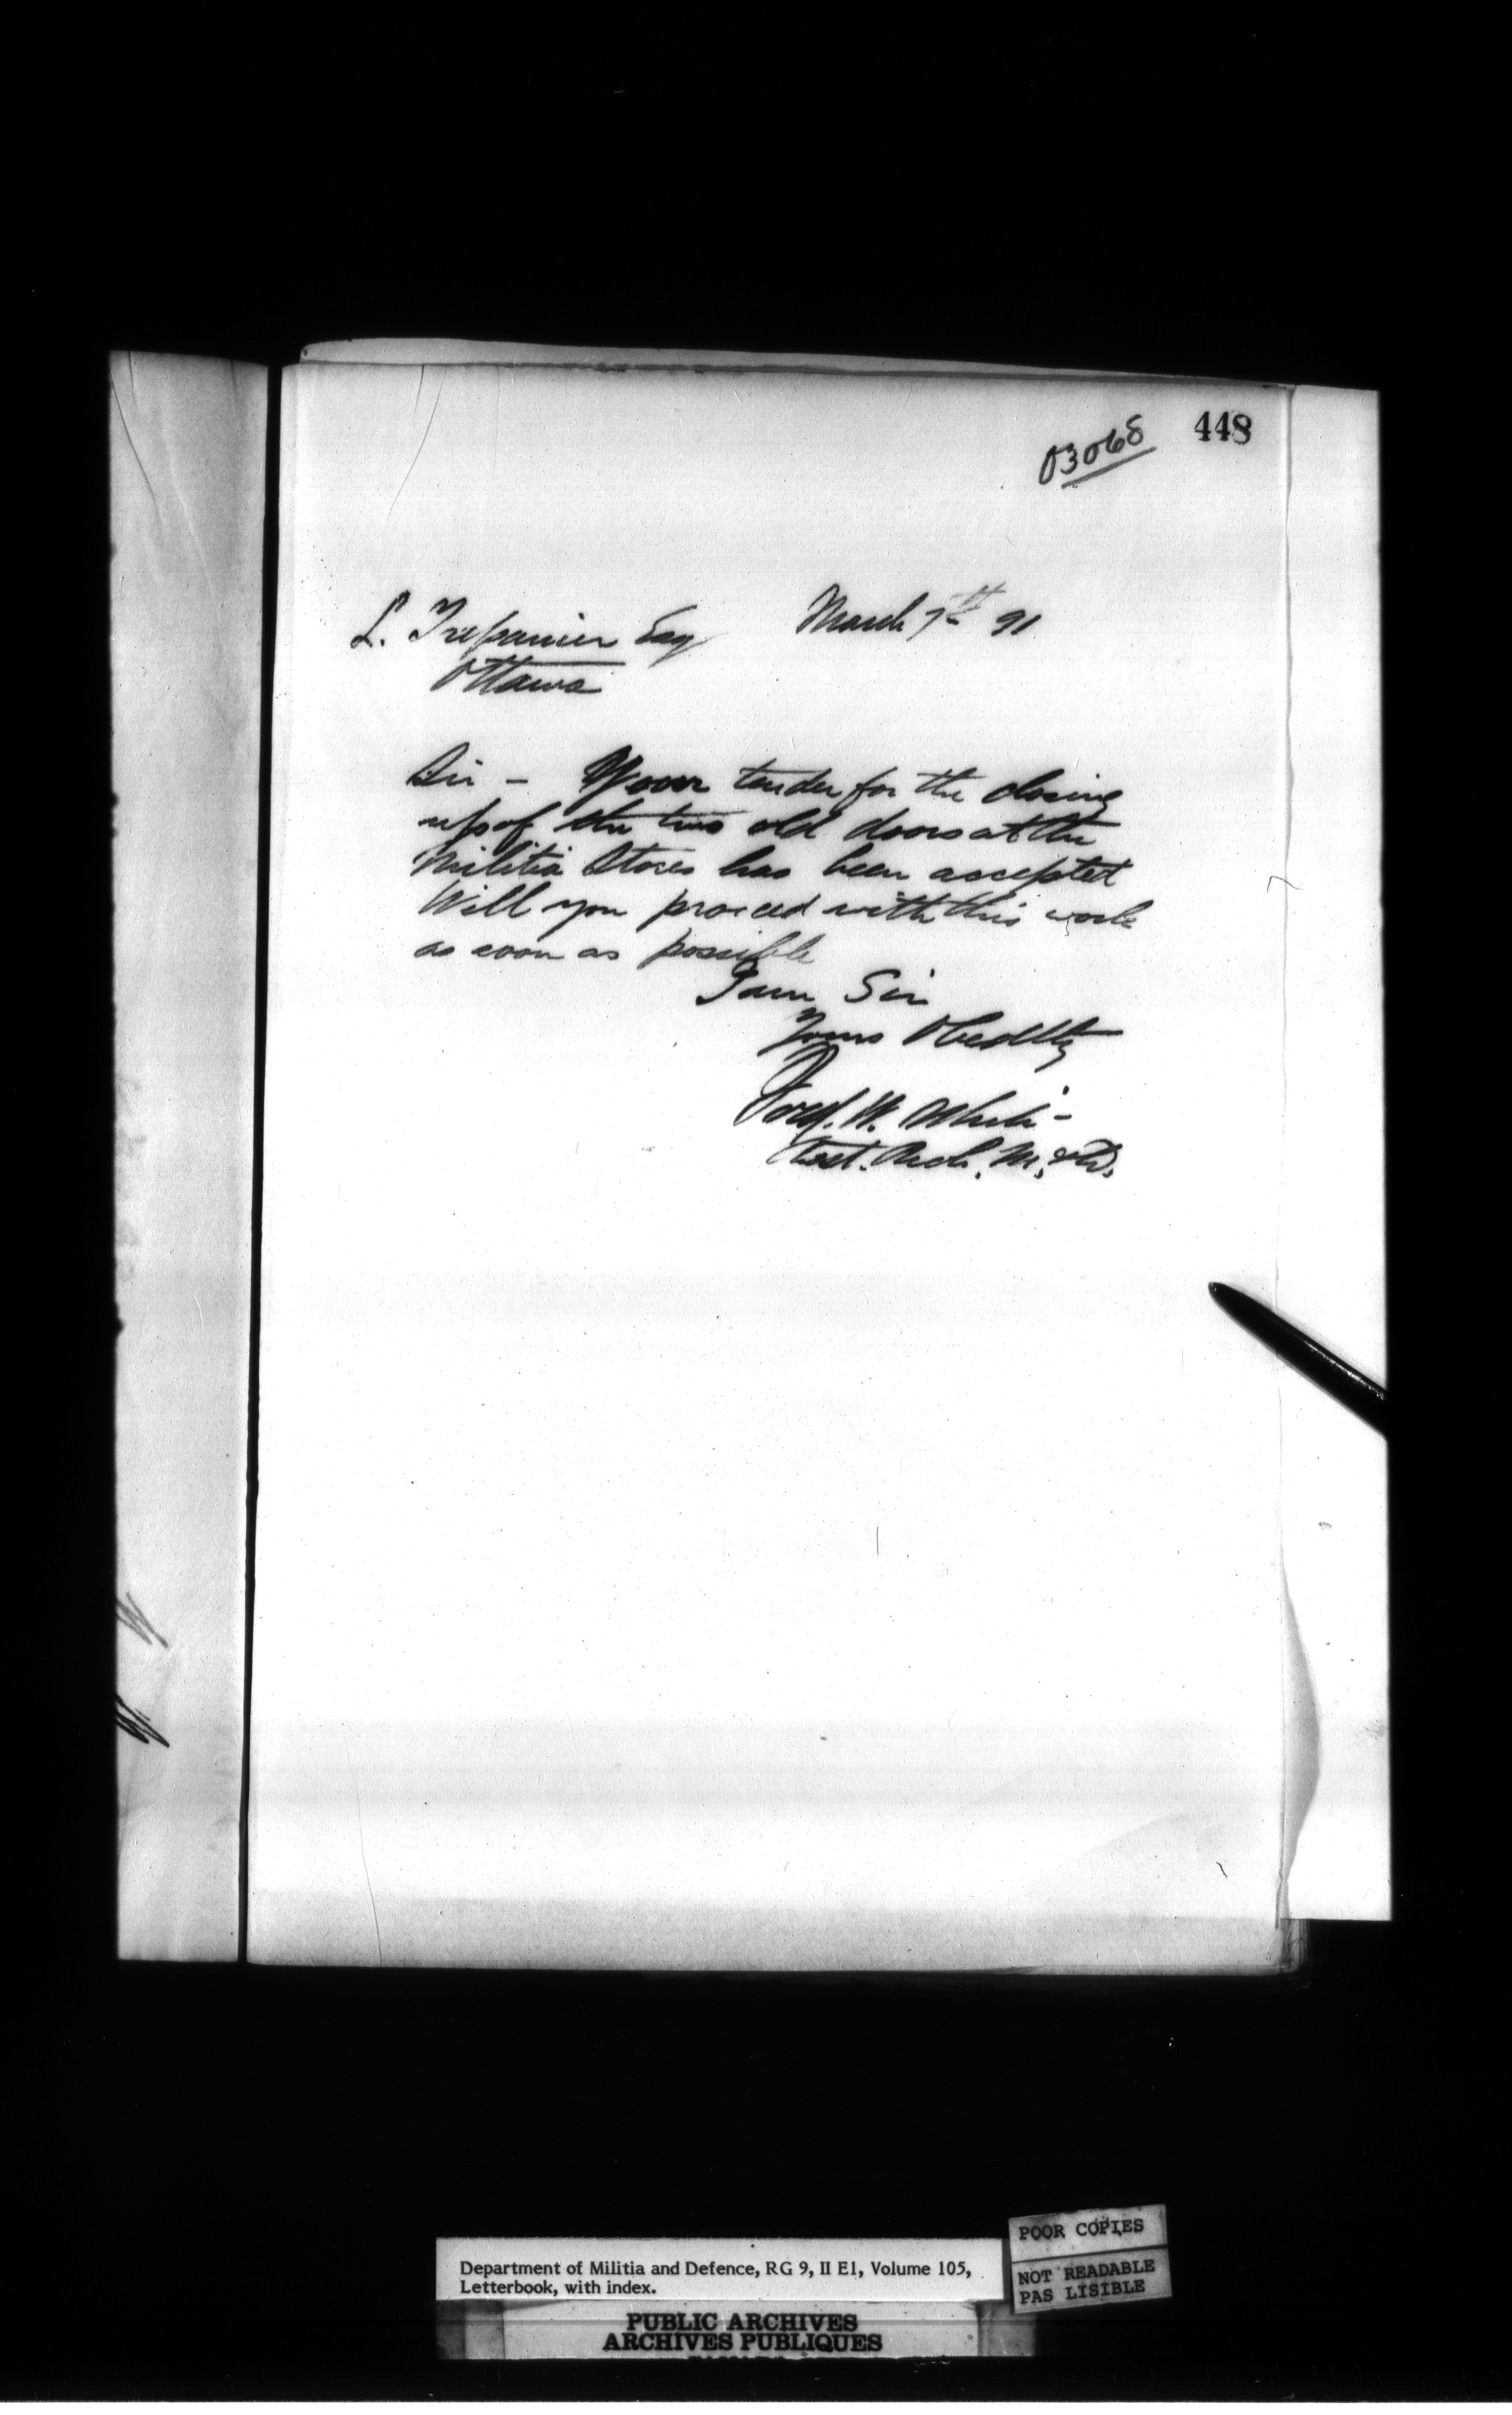 448
03068
March 7th 91
L. Trepanier Esq
Ottawa
Sir - Your tender for the closing
up of the two old doors at the
Militia Stores has been accepted
Will you proceed with this work
as soon as possible
I am Sir
Yours Obedtly
Fred. W. White
Asst. Arch. M. & D.
Department of Militia and Defence, RG 9, II E1, Volume 105,
Letterbook, with index.
POOR COPIES
NOT READABLE
PAS LISIBLE
PUBLIC ARCHIVES
ARCHIVES PUBLIQUES